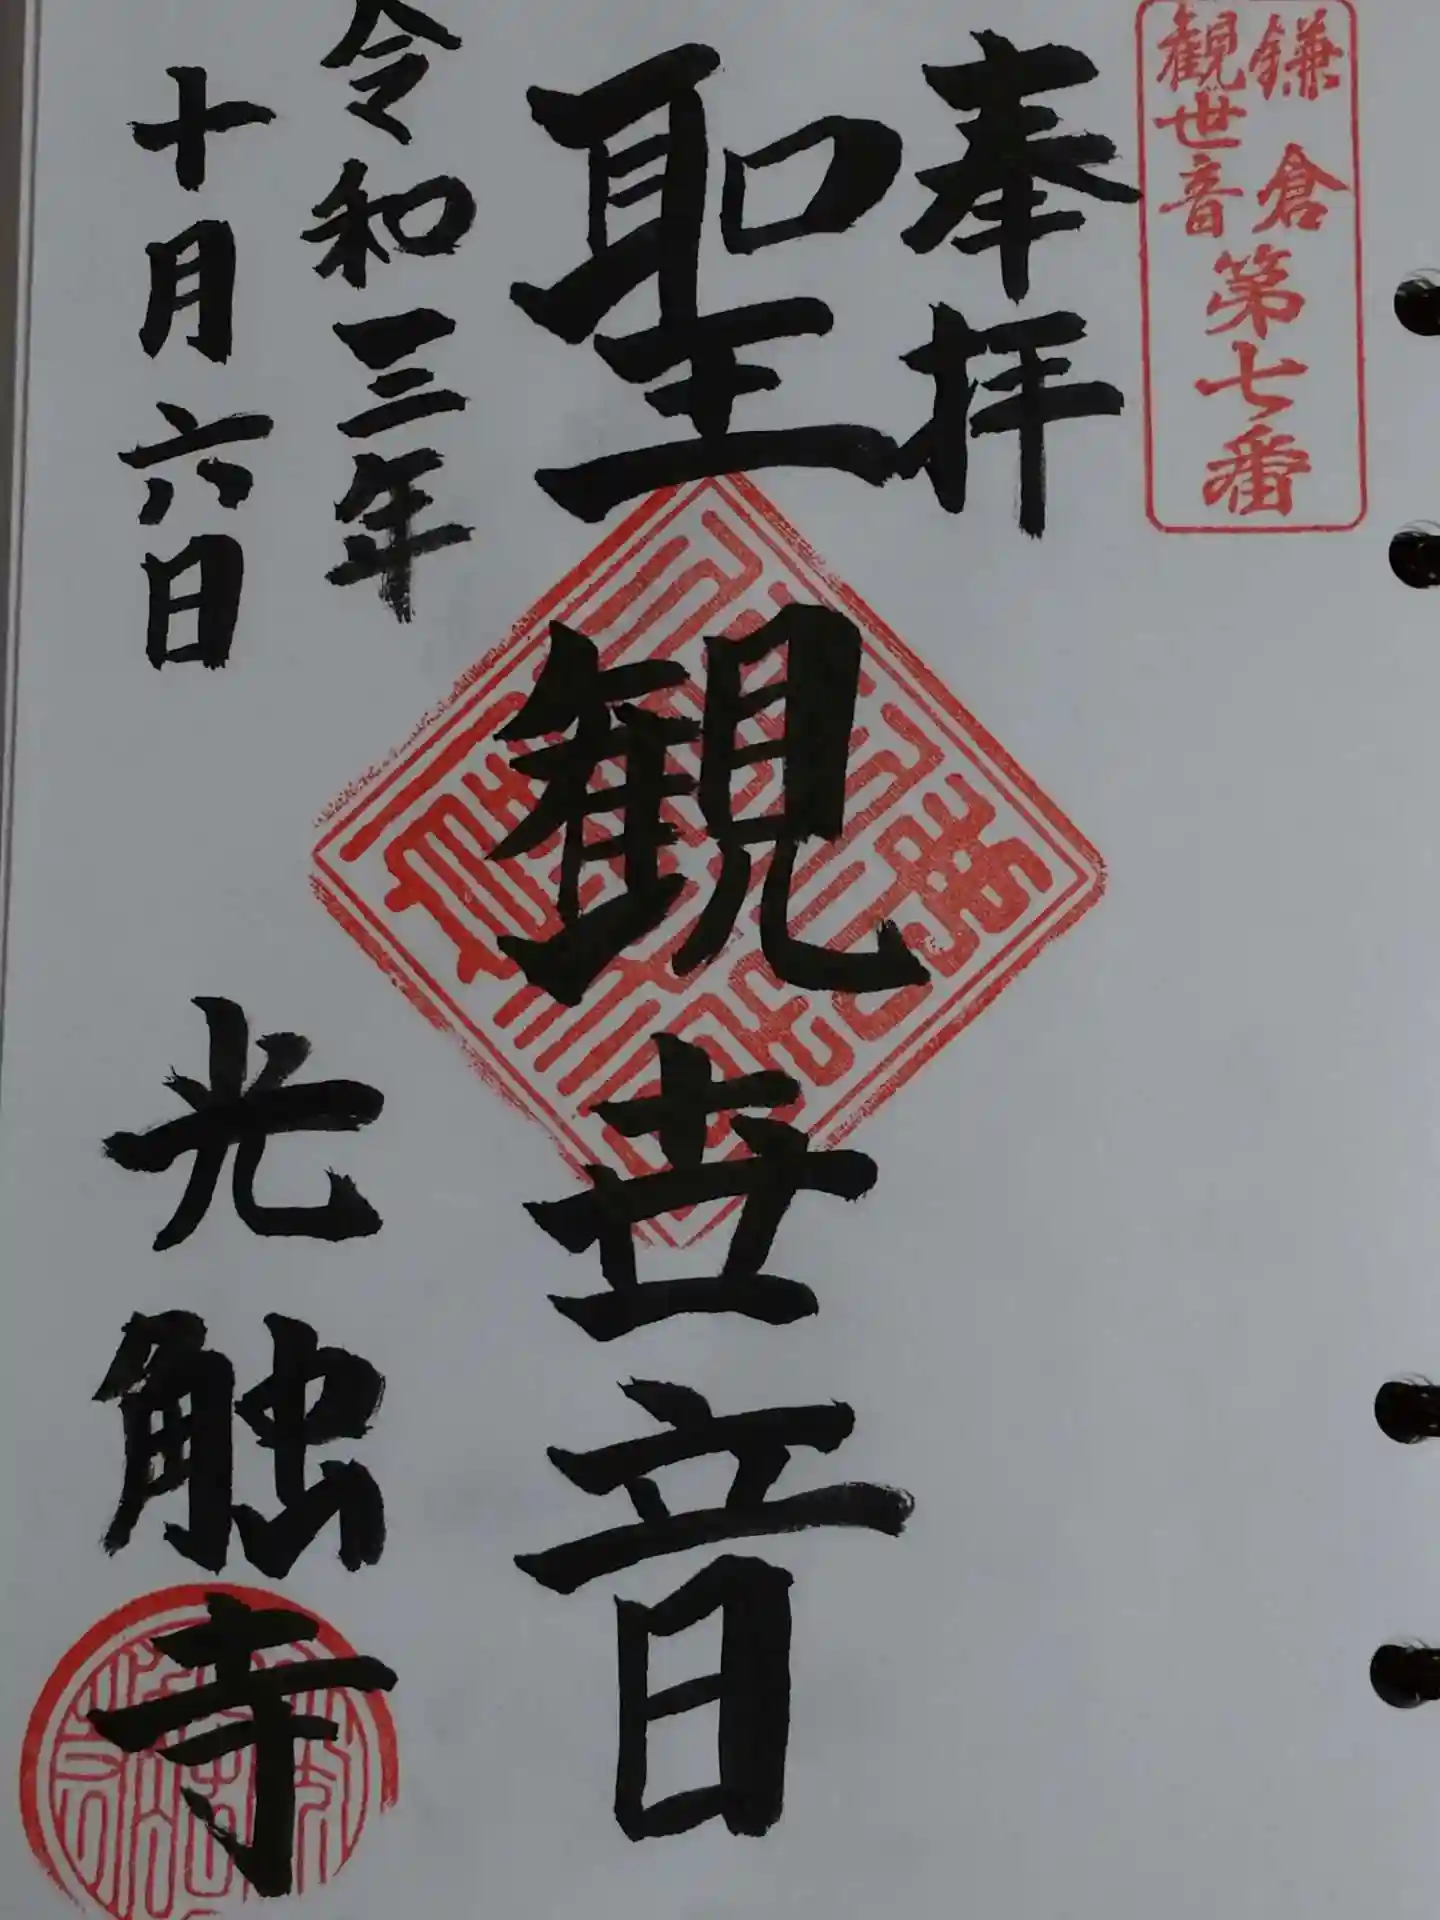 鎌倉
観世音
第七番
奉拝
聖観世音
令和三年
十月六日
光触寺